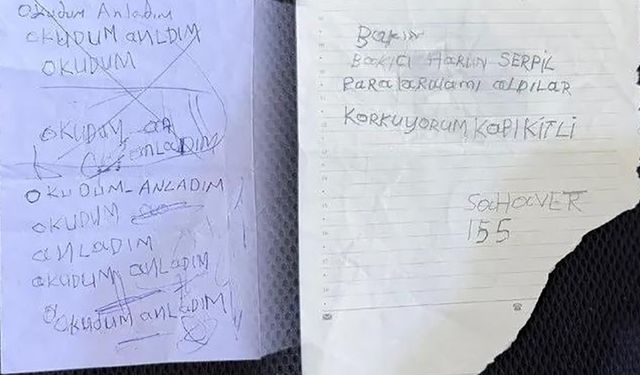 Okudum Anladım
OKUDUM ANLDIM
OKUDUM
OKUDUM
ANLADIM
OKUDUM-ANLADIM
OKUDUM
ANLADIM
OKUDUM ANLADIM
OKUDUM ANLADIM
BAKICI HARUN SERPİL
PARALARIMI ALDILAR
KORKUYORUM KAPI KİTLİ
SAHAVER
155